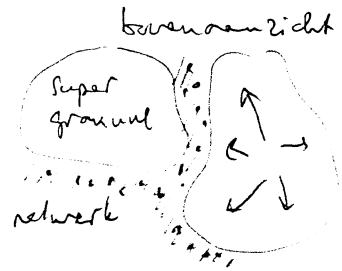 bovenaanzicht
super
granuul
netwerk